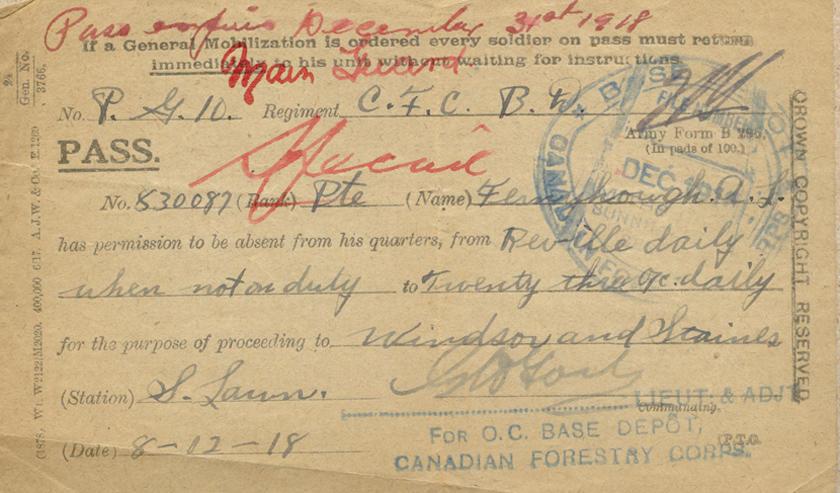 Pass expires December 31st 1918
If a General Mobilization is ordered every soldier on pass must return
immediately to his unit without waiting for instructions.
Main Guard
No. P. G. 10. Regiment C. F. C. B. D.
Army Form B 295.
(In pads of 100.)
PASS.
Special
No. 830087 (Rank) Pte (Name) Fernyhough. A. L.
has permission to be absent from his quarters, from Reville daily
when not on duty to Twenty three o/c. daily
for the purpose of proceeding to Windsor and Staines
(Station) S. Lawn.
LIEUT: & ADJT
Commanding.
(Date) 8-12-18
FOR O.C. BASE DEPÔT,
CANADIAN FORESTRY CORPS.
P.T.O.
BASE
FILE NUMBER
DEC
SUNN
CANADIAN FO
24
Gen. No.
3766.
(1878. Wt. W2122/M2020. 400,000 6/17. A.J.W. & Co. E.1290
CROWN COPYRIGHT RESERVED